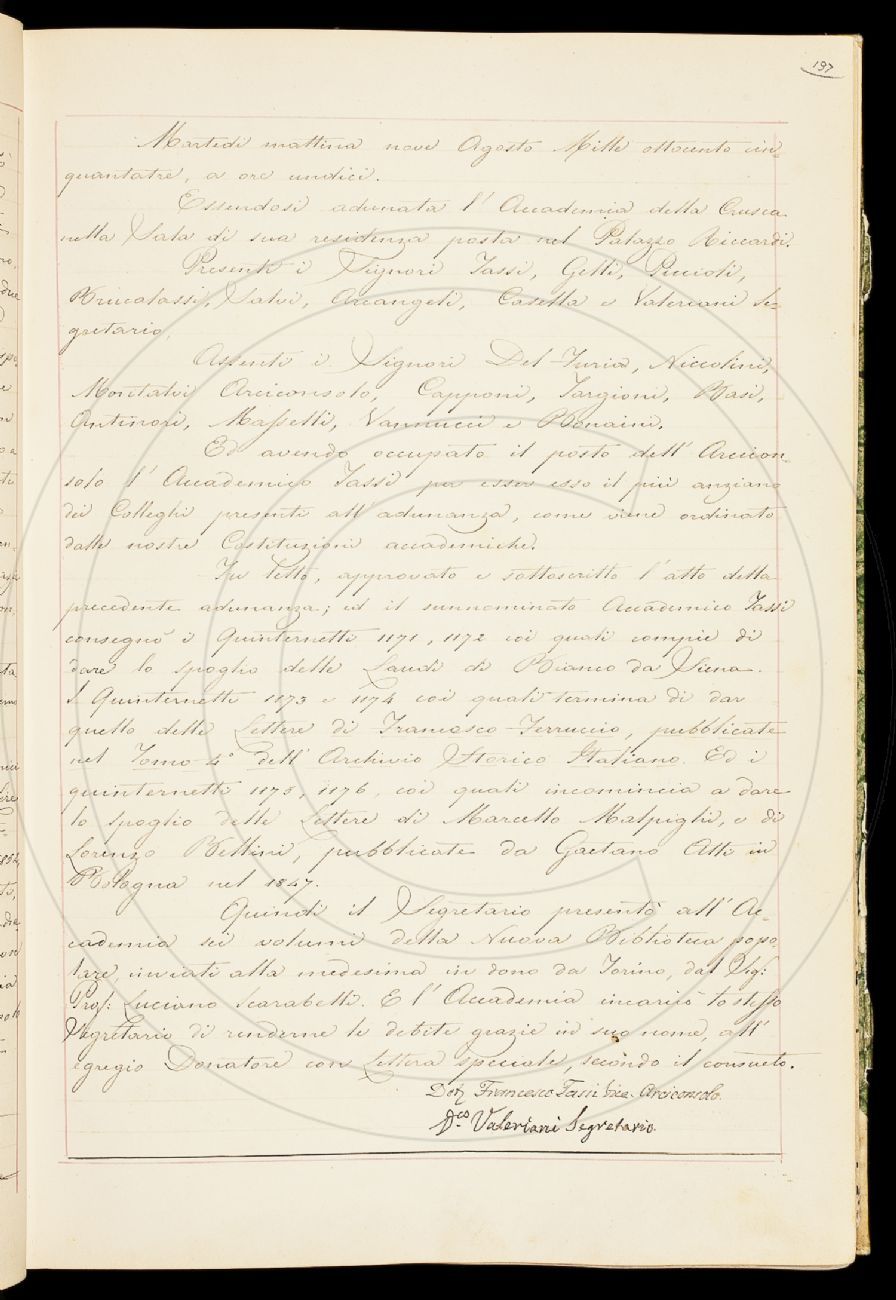 197
Martedì mattina nove Agosto Mille ottocento cin-
quantatrè, a ore undici.
Essendosi adunata l'Accademia della Crusca
nella Sala di sua residenza posta nel Palazzo Riccardi.
Presenti i Signori Tassi, Gelli, Puccioli,
Brucalassi, Salvi, Arcangeli, Casella e Valeriani Se-
gretario.
Assenti i Signori Del-Furia, Niccolini,
Montalvi Arciconsolo, Capponi, Targioni, Basi,
Antinori, Masselli, Vannucci e Bonaini.
Ed avendo occupato il posto dell'Arcicon-
solo l'Accademico Tassi per esser esso il più anziano
dei Colleghi presenti all'adunanza, come viene ordinato
dalle nostre Costituzioni accademiche.
Fu letto, approvato e sottoscritto l'atto della
precedente adunanza; ed il sunnominato Accademico Tassi
consegnò i Quinternetti 1171, 1172 coi quali compie di
dare lo spoglio delle Laudi di Bianco da Siena.
I Quinternetti 1173 e 1174 coi quali termina di dar
quello delle Lettere di Francesco Ferruccio, pubblicate
nel Tomo 4° dell'Archivio Storico Italiano. Ed i
quinternetti 1175, 1176, coi quali incomincia a dare
lo spoglio delle Lettere di Marcello Malpighi, e di
Lorenzo Bellini, pubblicate da Gaetano Atti in
Bologna nel 1847.
Quindi il Segretario presentò all'Ac-
cademia sei volumi della Nuova Biblioteca popo-
lare, inviati alla medesima in dono da Torino, dal Sig:
Prof: Luciano Scarabelli. E l'Accademia incaricò lo stesso
Segretario di renderne le debite grazie in suo nome, all'
egregio Donatore con Lettera speciale, secondo il consueto.
Dott Francesco Tassi Vice-Arciconsolo.
D.co Valeriani Segretario